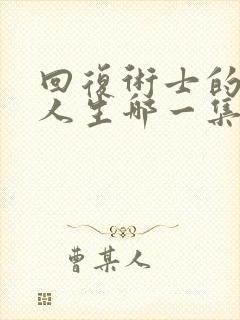 回復術士的
人生哪一集
曹某人